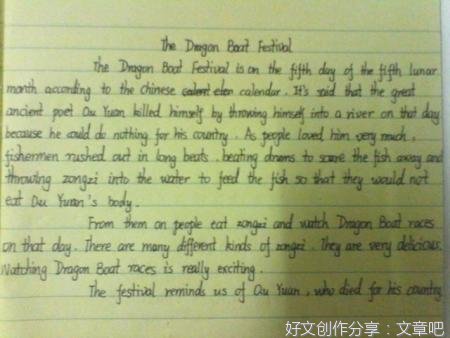 The Dragon Boat Festival
The Dragon Boat Festival is on the fifth day of the fifth lunar
month according to the chinese calendar. It's said that the great
ancient poet Qu Yuan killed himself by throwing himself into a river on that day
because he could do nothing for his country. As people loved him very much,
fishermen rushed out in long boats, beating drums to scare the fish away and
throwing zongzi into the water to feed the fish so that they would not
eat Qu Yuan's body.
From them on people eat zongzi and watch Dragon Boat races
on that day. There are many different kinds of zongzi. They are very delicious.
Watching Dragon Boat races is really exciting.
The festival reminds us of Qu Yuan, who died for his country
好文创作分享：文章吧